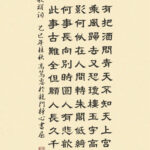 有把酒問青天不知天上宮
乘風歸去又恐瓊樓玉宇高
影何似在人間轉朱閣低綺
何事長向別時圓人有悲歡
此事古難全但願人長久千
歌頭詞 乙巳年桂秋 於龍門靜心書屋